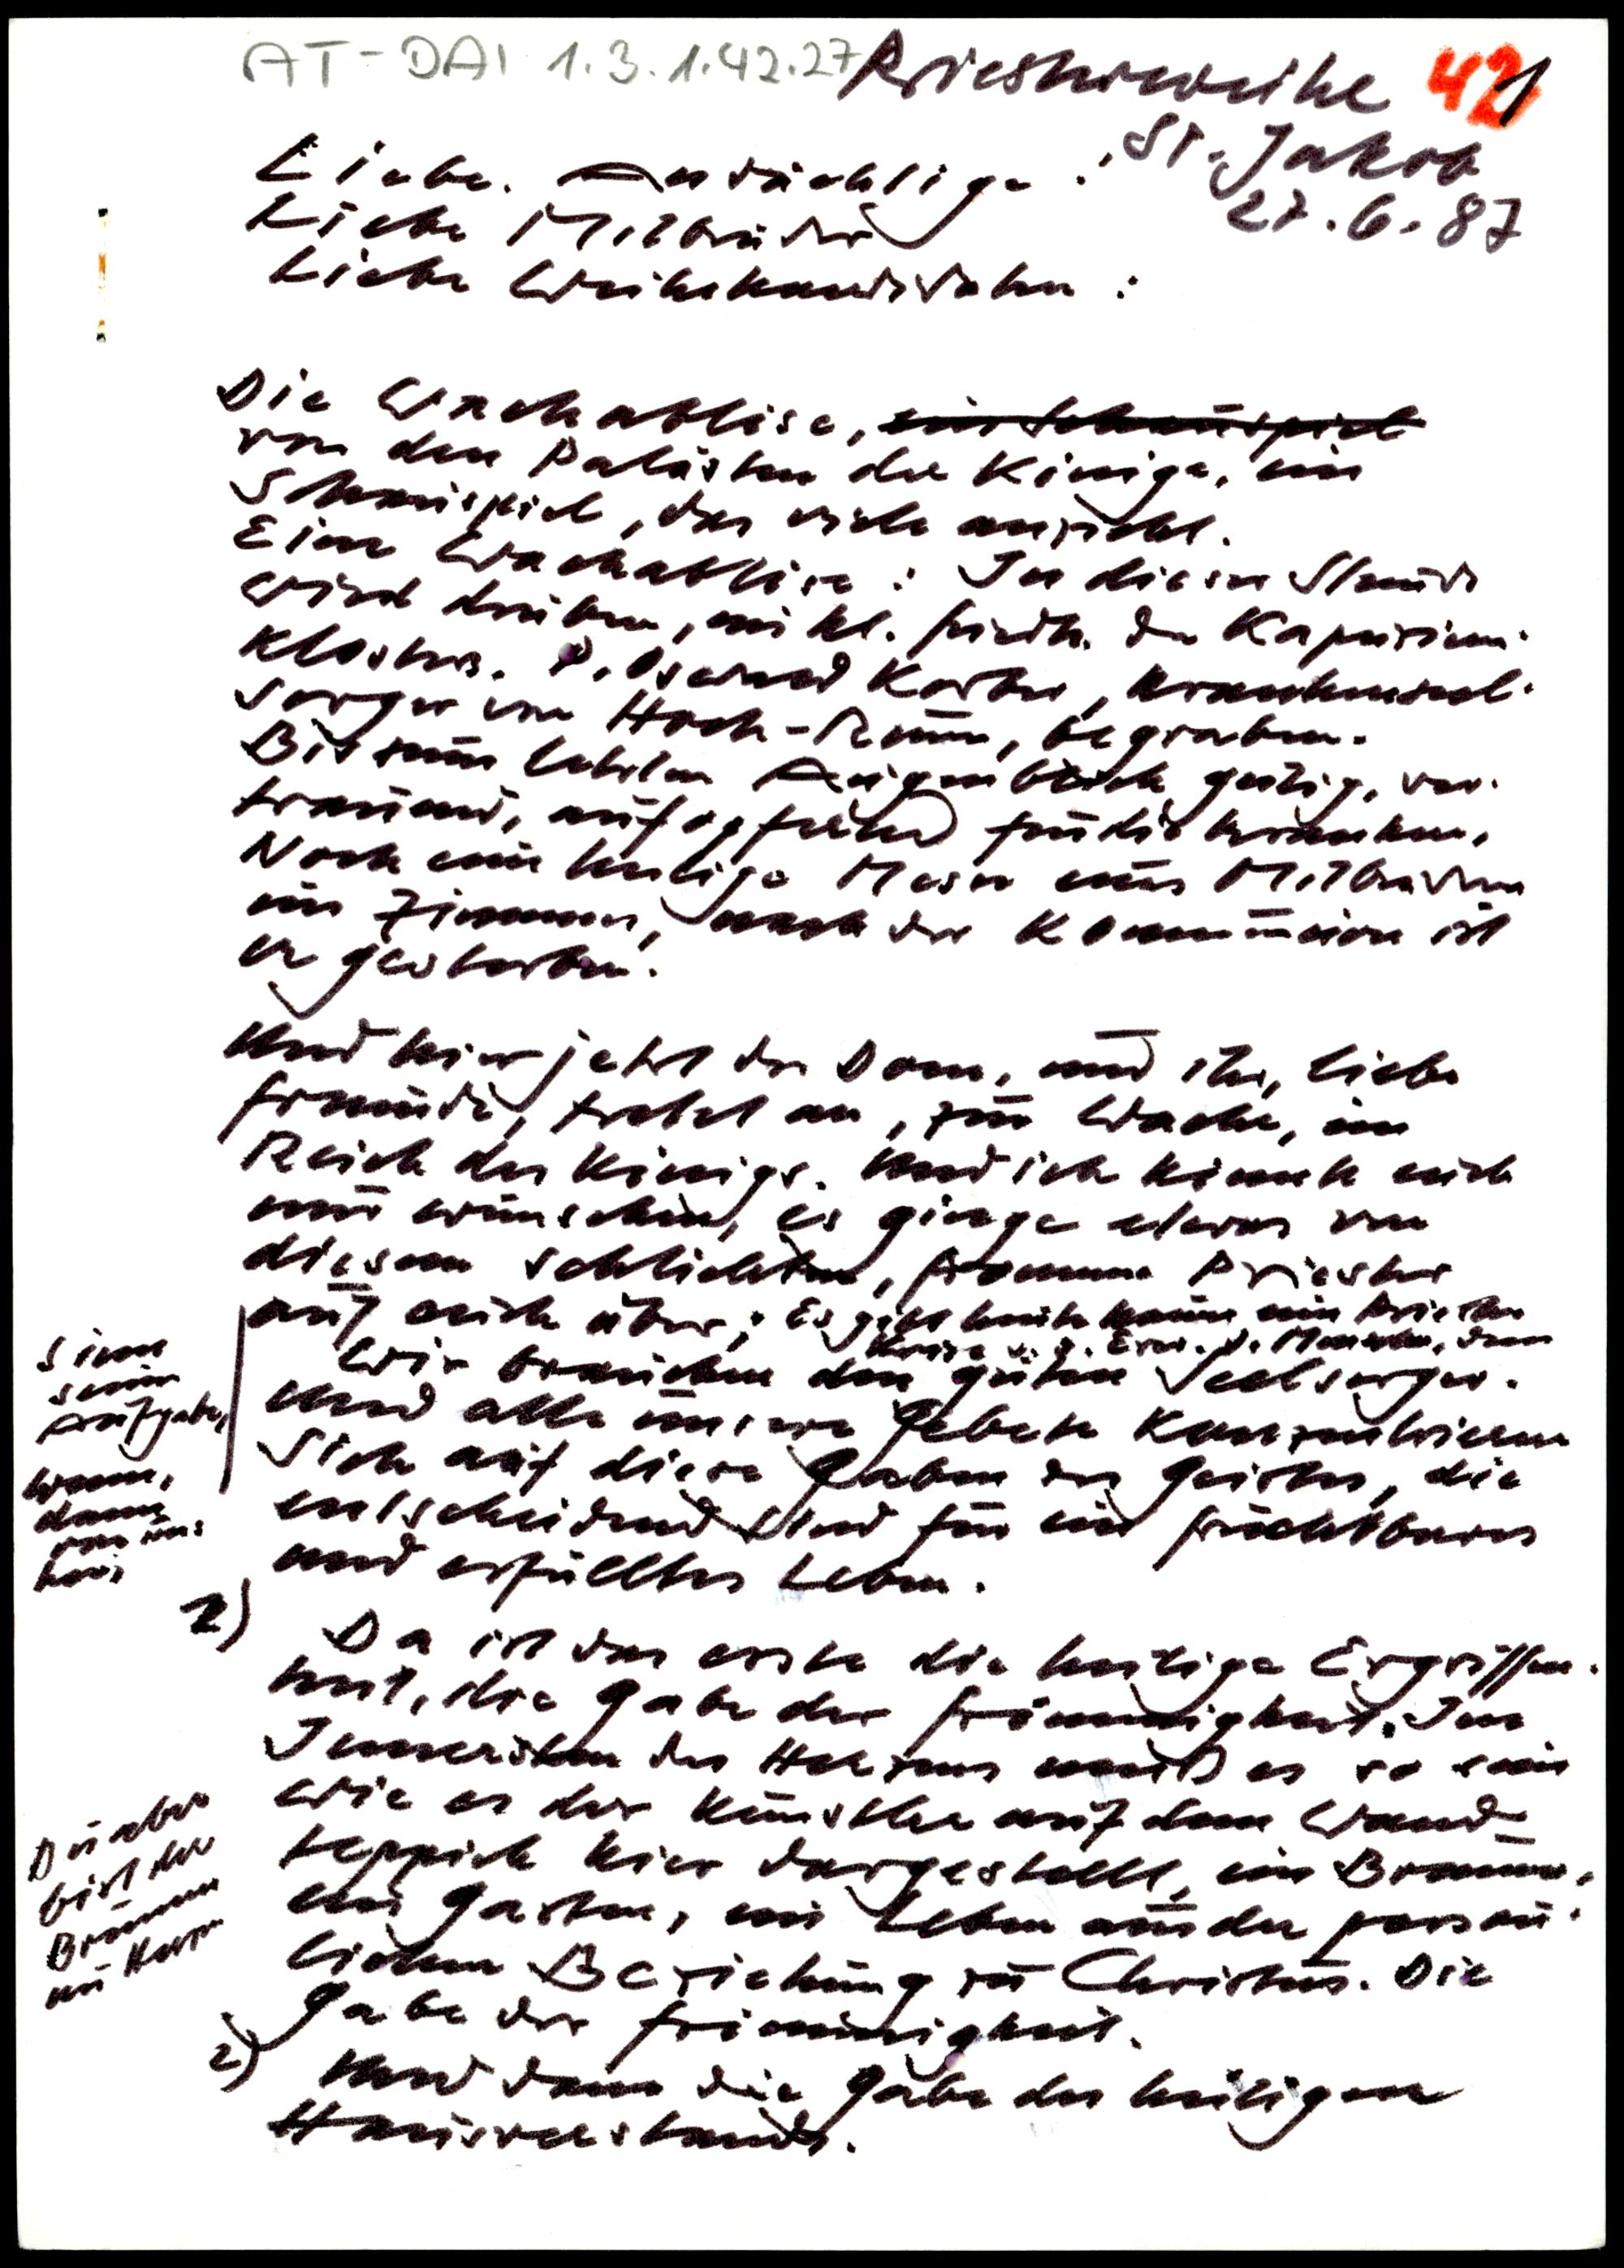 AT-DAI 1.3.1.42.27
Priesterweihe 421
St. Jakob
27.6.87
Liebe Andächtige!
Liebe Mitbrüder
Liebe Weihekandidaten:
Die Wachablöse, ein Schauspiel
vor den Palästen der Könige, ein
Schauspiel, das viele anzieht.
Eine Wachablöse: In dieser Stunde
wird drüben, im kl. Friedh. des Kapuziner-
klosters P. Oswald Korber, Krankenseel-
sorger von Hoch-Rum, begraben.
Bis zum letzten Augenblick gütig, ver-
trauend, aufopfernd für die Kranken,
Noch eine heilige Messe eines Mitbruders
im Zimmer, nach der Kommunion ist
er gestorben.
Und hier jetzt der Dom, und ihr, liebe
Freunde, tretet an, zur Wache, im
Reich des Königs. Und ich könnte euch
nur wünschen, es ginge etwas von
diesem schlichten, frommen Priester
auf euch über; Es gibt heute kaum ein
Wir brauchen den guten Seelsorger.
Und alle unsere Gebete konzentrieren
sich auf diese Gaben des Geistes, die
entscheidend sind für ein fruchtbares
und erfülltes Leben.
Sinn
seiner
Aufgabe,
wenn,
dann
von uns
her,
1) Da ist das erste die heilige Ergriffen-
heit, die Gabe der Frömmigkeit. Im
Innersten des Herzens muß es so sein
wie es der Künstler auf dem Wand-
teppich hier dargestellt, ein Brunnen,
ein Garten, ein Leben aus der persön-
lichen Beziehung zu Christus. Die
Gabe der Frömmigkeit.
Du aber
bist der
Brunnen
im Herzen
2) Und dann die Gabe des heiligen
Hausverstands.